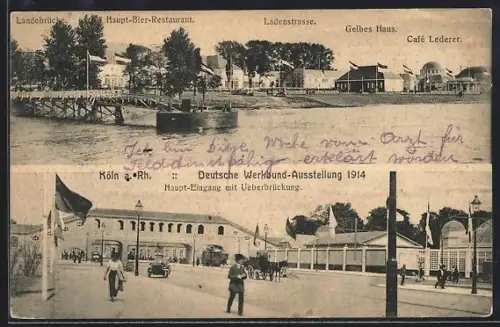 Landebrücke. Haupt-Bier-Restaurant. Ladenstrasse. Gelbes Haus. Café Lederer.
Ich bin diese Woche vom Arzt für
Felddienstfähig erklärt worden
Köln a. Rh. :: Deutsche Werkbund-Ausstellung 1914
Haupt-Eingang mit Ueberbrückung.